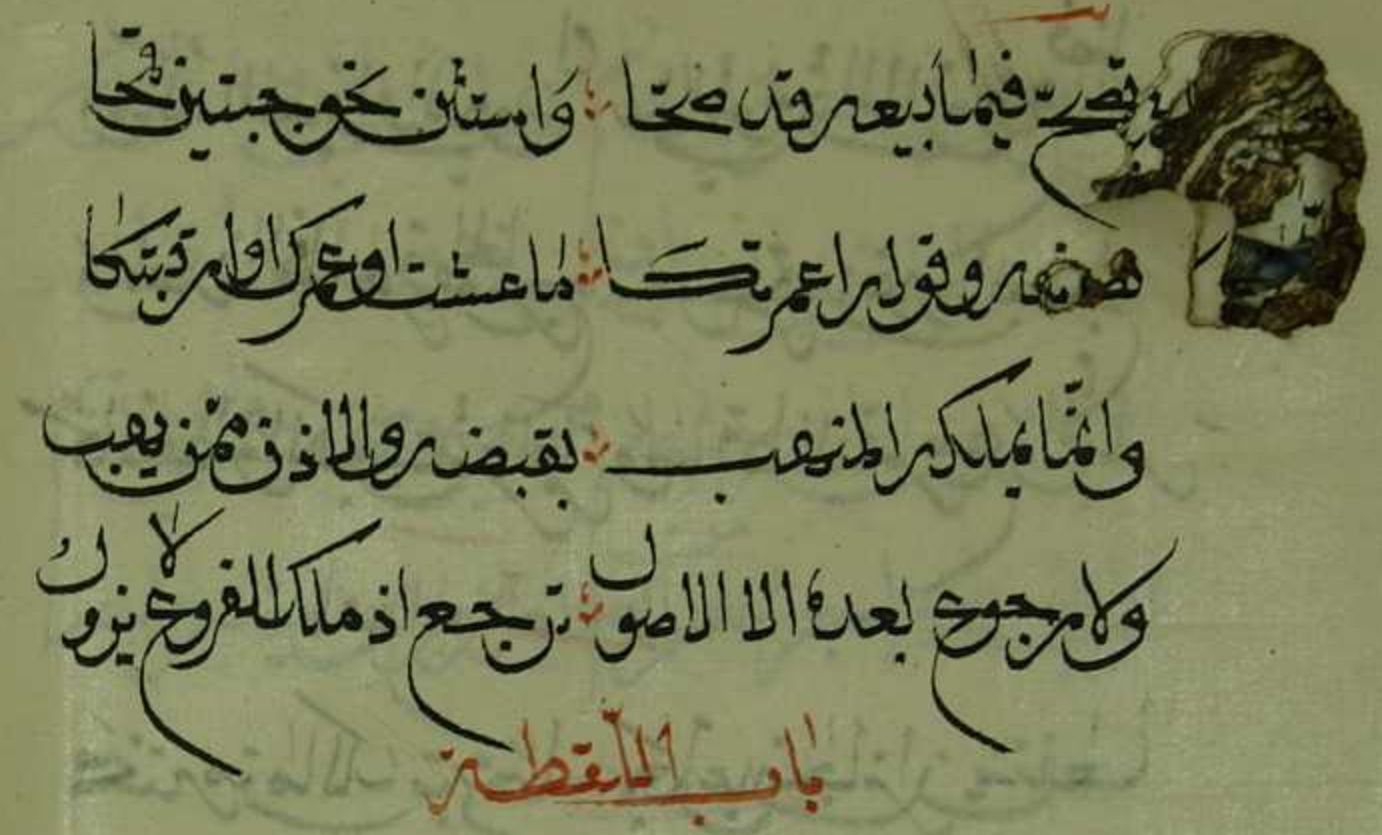 تصحّ فيما بيعه قد صحّا ؞ واستثن نحو حبتين قمحا
بصيغه وقوله اعمرتكا ؞ ما عشت او عمرك او ارقبتكا
وانّما يملكه المتهب ؞ بقبضه والاذن ممّن يهب
ولا رجوع بعده الا الاصول ؞ ترجع اذ ملك الفروع لا يزول
باب اللّقطة